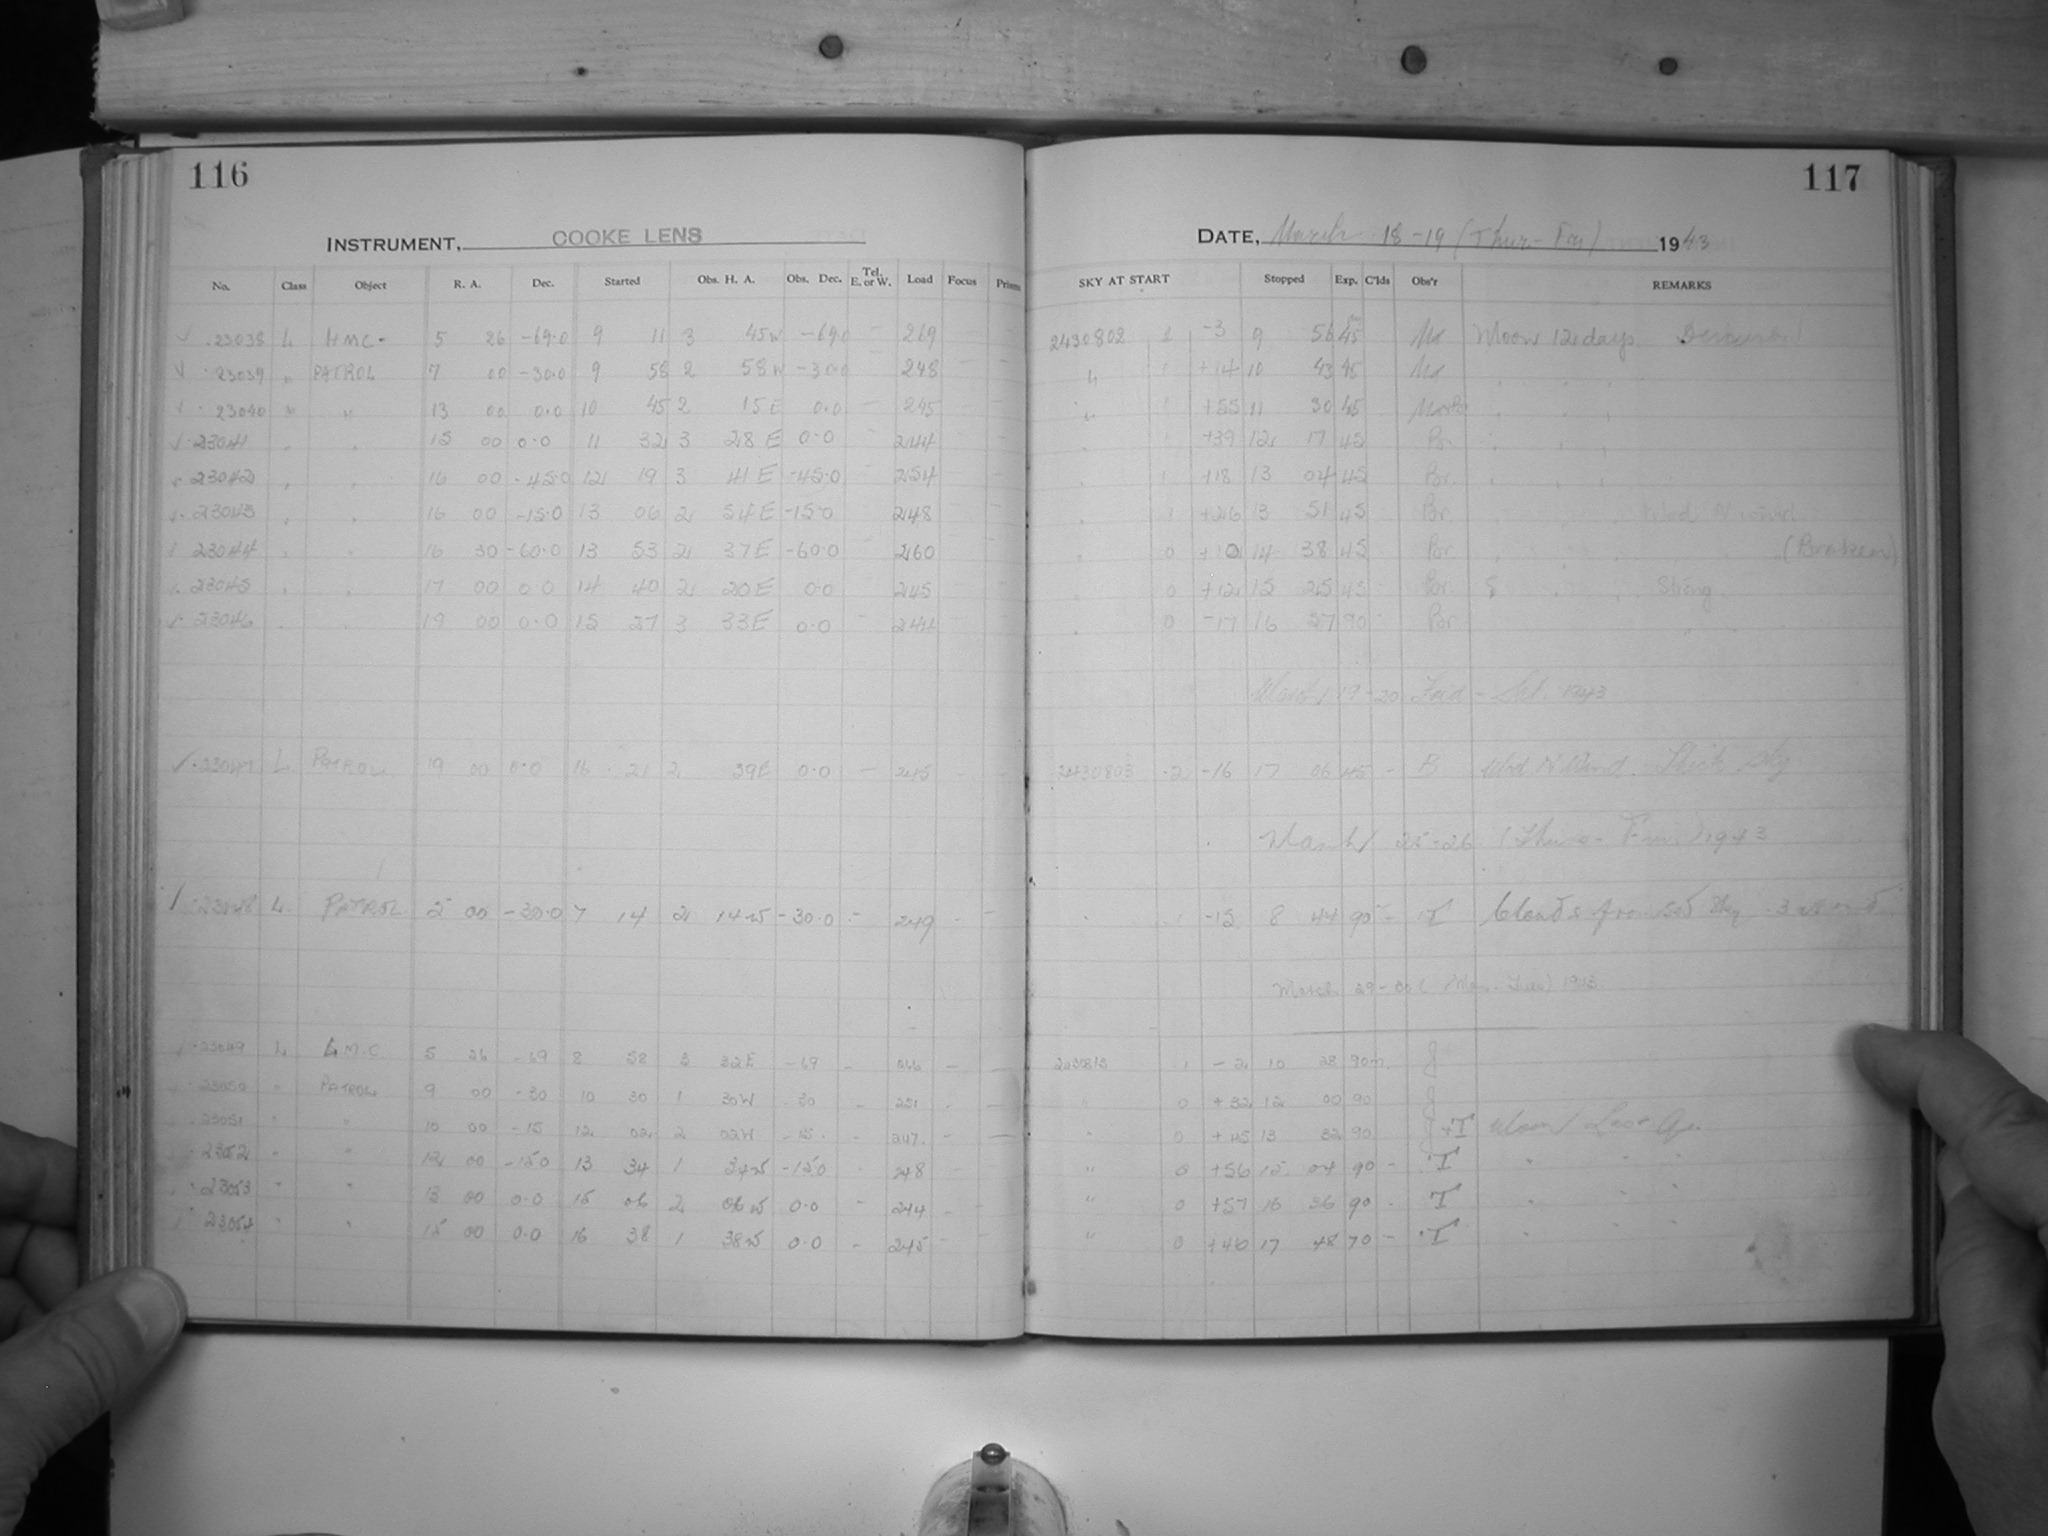 116
INSTRUMENT, COOKE LENS
No. Class Object R. A. Dec. Started Obs. H. A. Obs. Dec. Tel. E. or W. Load Focus Prism
23038 L 5 26 -69.0 9 11 3 45W -69.0 - 269 - -
23039 " PATROL 7 00 -30.0 9 58 2 58W -30.0 - 248 - -
23040 " " 13 00 0.0 10 45 2 15E 0.0 - 245 - -
23041 " " 15 00 0.0 11 32 3 28E 0.0 - 244 - -
23042 " " 16 00 -45.0 12 19 3 41E -45.0 - 254 - -
23043 " " 16 00 -15.0 13 06 2 54E -15.0 - 248 - -
23044 " " 16 30 -60.0 13 53 2 37E -60.0 - 260 - -
23045 " " 17 00 0.0 14 40 2 20E 0.0 - 245 - -
23046 " " 19 00 0.0 15 27 3 33E 0.0 - 244 - -
23047 L PATROL 19 00 0.0 16 21 2 39E 0.0 - 245 - -
23048 L PATROL 5 00 -30.0 7 14 2 14W -30.0 - 249 - -
23049 L 5 26 -69 8 58 -69 - -
23050 " PATROL 9 00 -30 10 30 1 30W -30 - 251 - -
23051 " " 10 00 -15 12 02 2 02W -15 - 247 - -
23052 " " 12 00 -15.0 13 34 1 34W -15.0 - 248 -
23053 " " 13 00 0.0 15 06 2 06W 0.0 - 244 - -
23054 " " 15 00 0.0 16 38 1 38W 0.0 - 245 - -
117
DATE, March 18-19 (Thur-Fri) 1943
SKY AT START Stopped Exp. C'lds Obs'r REMARKS
2430802 1 -3 9 56 45 Moon 12 days
" 1 +14 10 43 45
" 1 +55 11 30 45
" 1 +39 12 17 45 Br.
" 1 +18 13 04 45 Br.
" 1 +26 13 51 45 Br. Mod N wind
" 0 +10 14 38 45 Br.
" 0 +12 15 25 45 Br. Strong
" 0 -17 16 57 90 Br.
March 19-20 Frid - Sat. 1943
2430803 2 -16 17 06 45 - B Mod. N. Wind. Thick Sky
March 25-26 (Thurs - Fri.) 1943
1 -15 8 44 90 - T Clouds from
March 29-30 (Mon-Tues) 1943
1 -2 10 28 90m. J
" 0 +32 12 00 90 J
" 0 +45 13 32 90 J+T Moon Last Qr.
" 0 +56 15 04 90 - T " " "
" 0 +57 16 36 90 - T " " "
" 0 +40 17 48 70 - T " " "